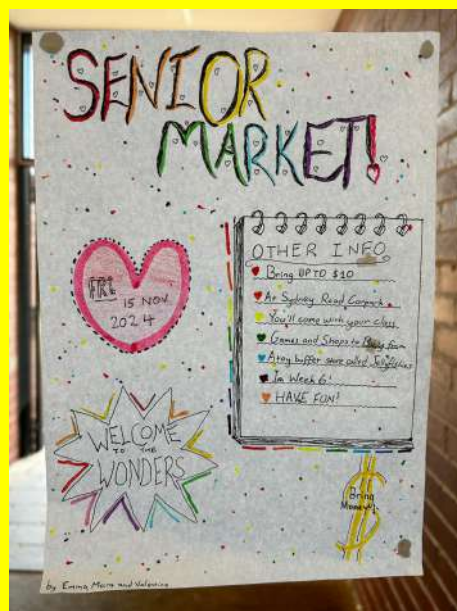 SENIOR
MARKET!
FRI
15 NOV
2024
OTHER INFO
Bring UP TO $10
At Sydney Road Carpark
You'll come with your class
Games and Shops to from
A toy buffer store called
In Week 6!
HAVE FUN!
WELCOME
TO THE
WONDERS
Bring
Money!
by Emma, and Valentina